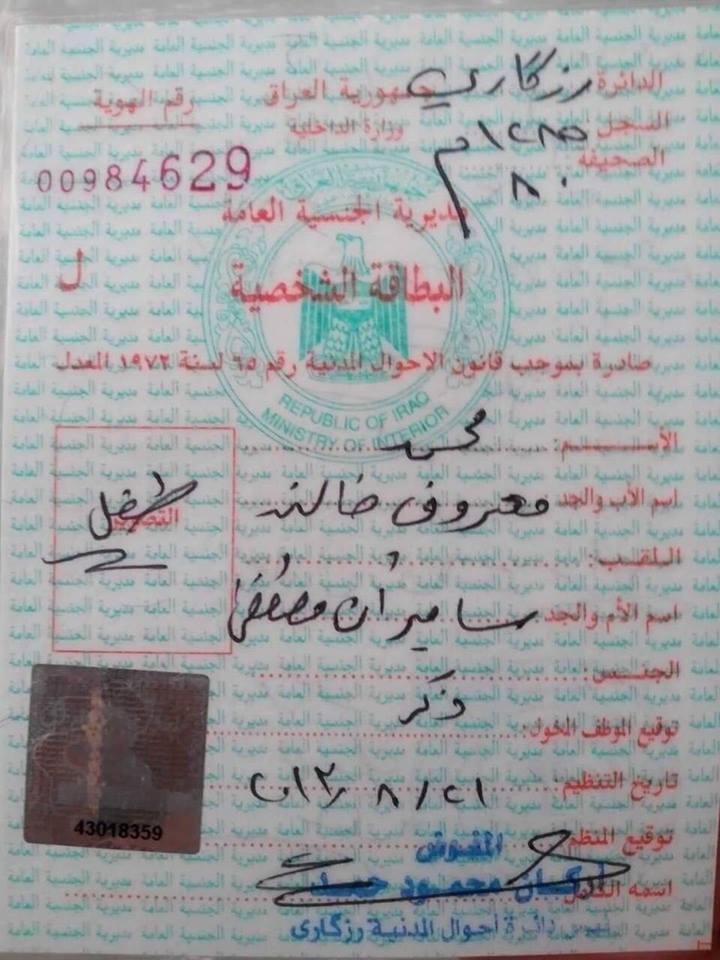 الدائرة رزكاري
جمهورية العراق
رقم الهوية
السجل ١٢٨٥ م
وزارة الداخلية
الصحيفة ٨٠
00984629
مديرية الجنسية العامة
ل
البطاقة الشخصية
صادرة بموجب قانون الاحوال المدنية رقم ٦٥ لسنة ١٩٧٢ المعدل
REPUBLIC OF IRAQ
MINISTRY OF INTERIOR
الأسم: محمد
اسم الأب والجد معروف خالد
التصوير طفل
اللقب:
اسم الأم والجد ساميران مصطفى
الجنس: ذكر
توقيع الموظف المخول:
تاريخ التنظيم:
توقيع المنظم
43018359
المفوض
محمود حمد
دائرة احوال المدنية رزگاری